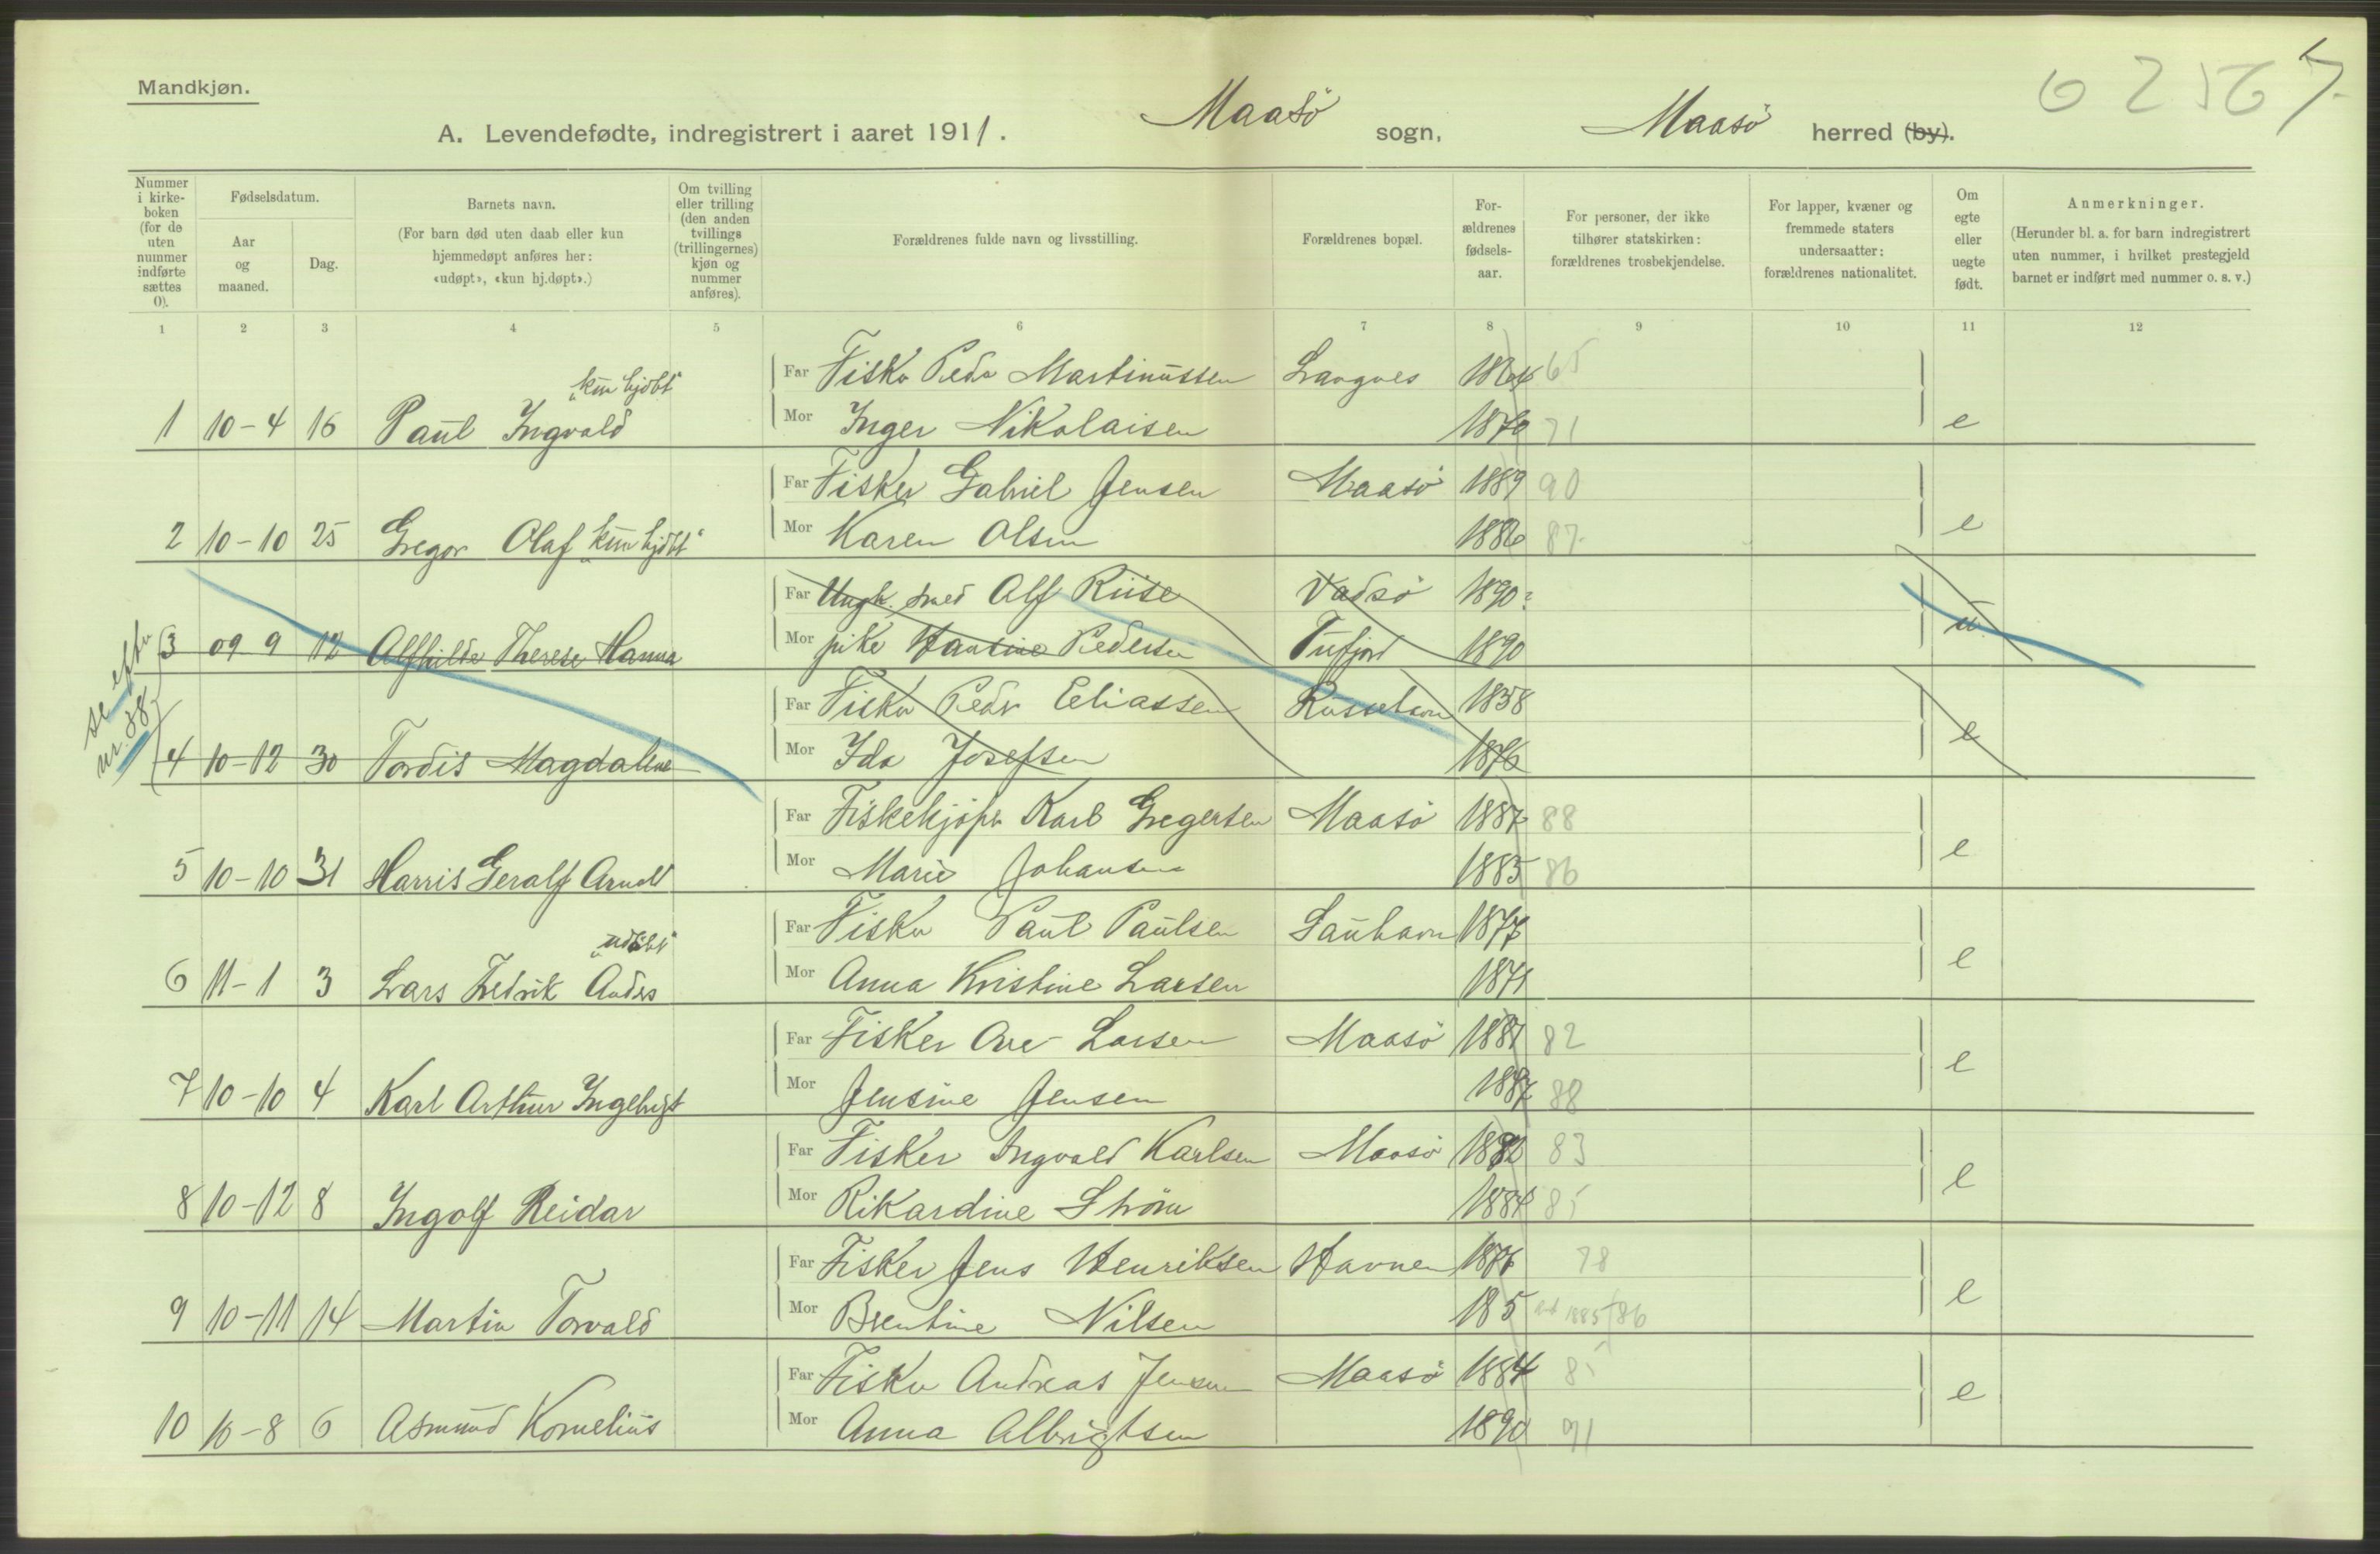 Mandkjøn.
A. Levendefødte, indregistrert i aaret 1911. Maasö sogn, Maasö herred (by).
Nummer i kirke-boken (for de uten nummer indførte sættes 0).
Fødselsdatum.
Aar og maaned.
Dag.
Barnets navn.
(For barn død uten daab eller kun hjemmedøpt anføres her: «udøpt», «kun hj.døpt».)
Om tvilling eller trilling (den anden tvillings (trillingernes) kjøn og nummer anføres).
Forældrenes fulde navn og livsstilling.
Forældrenes bopæl.
For-ældrenes fødsels-aar.
For personer, der ikke tilhører statskirken: forældrenes trosbekjendelse.
For lapper, kvæner og fremmede staters undersaatter: forældrenes nationalitet.
Om egte eller uegte født.
Anmerkninger.
(Herunder bl. a. for barn indregistrert uten nummer, i hvilket prestegjeld barnet er indført med nummer o. s. v.)
1 2 3 4 5 6 7 8 9 10 11 12
"kun hjdbt" Far Fisker Peder Martinussen Langnes 1864 65
1 10-4 16 Paul Ingvald Mor Inger Nikolaisen 1870 71 e
Far Fisker Gabriel Jensen Maasö 1889 90
2 10-10 25 Gregor Olaf "kun hjdbt" Mor Karen Olsen 1886 87 e
Far Ungk. smed Alf Riise Vadsö 1890?
3 09 9 12 Alfhilde Therese Hanna Mor pike Hansine Pedersen Tufjord 1890 u
Far Fisker Peder Eliassen Russehavn 1858
se efter nr. 38
4 10-12 30 Tordis Magdalene Mor Ida Josefsen 1876 e
Far Fiskekjöper Karl Gregersen Maasö 1887 88
5 10-10 31 Harris Geralf Arnolt Mor Marie Johansen 1885 86 e
"udöbt" Far Fisker Paul Paulsen Sauhavn 1877
6 11-1 3 Lars Fredrik Anders Mor Anna Kristine Larsen 1871 e
Far Fisker Ove Larsen Maasö 1881 82
7 10-10 4 Karl Arthur Ingebrigt Mor Jensine Jensen 1887 88 e
Far Fisker Ingvald Karlsen Maasö 1882 83
8 10-12 8 Ingolf Reidar Mor Rikardine Ström 1884 85 e
Far Fisker Jens Henriksen Havnen 1877 78
9 10-11 14 Martin Torvald Mor Brentine Nilsen 185 1885/86 e
Far Fisker Andreas Jensen Maasö 1884 85
10 10-8 6 Asmund Kornelius Mor Anna Albrigtsen 1890 91 e